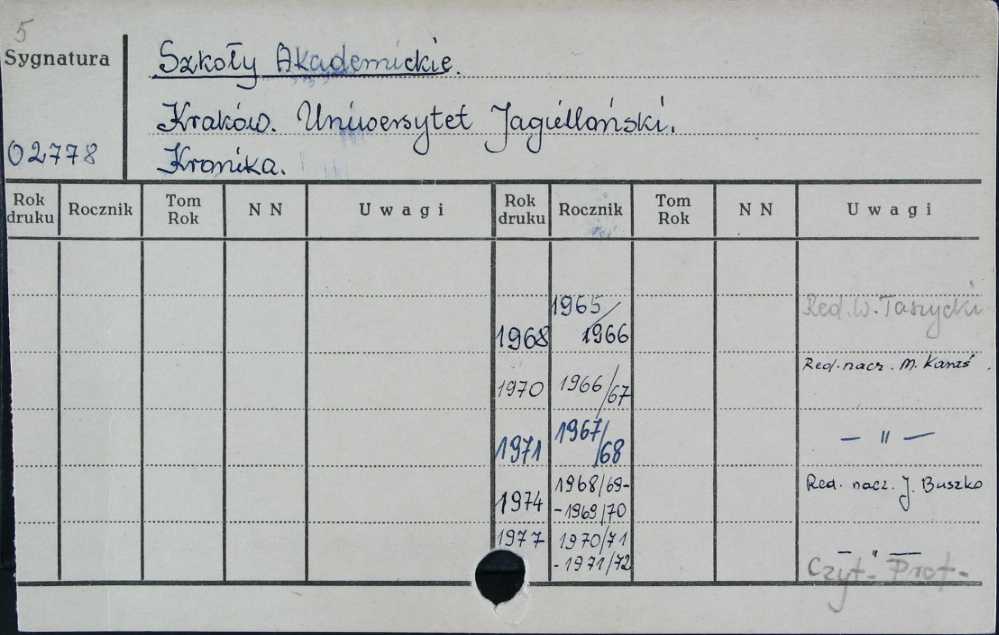 5
Sygnatura
Szkoły Akademickie.
Kraków. Uniwersytet Jagielloński.
02778
Kronika.
Rok druku Rocznik Tom Rok N N Uwagi Rok druku Rocznik Tom Rok N N Uwagi
1968 1965/1966 Red. W. Taszycki
1970 1966/67 Red. nacz. M. Karaś
1971 1967/68 — " —
1974 1968/69--1969/70 Red. nacz. J. Buszko
1977 1970/71-1971/72 — " —
Czyt. Prof.